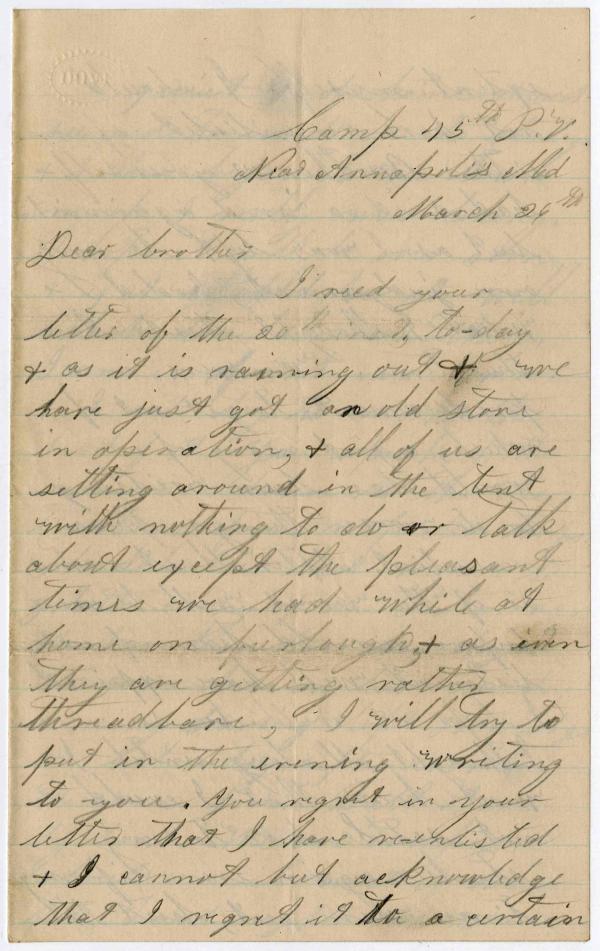 Camp 45th P.V.
Near Annapolis Md
March 26th
Dear brother
I recd your
letter of the 20th inst. to-day
& as it is raining out & we
have just got an old stove
in operation, & all of us are
setting around in the tent
with nothing to do or talk
about except the pleasant
times we had while at
home on furlough, & as even
they are getting rather
threadbare, I will try to
put in the evening writing
to you. You regret in your
letter that I have re-enlisted
& I cannot but acknowledge
that I regret it to a certain